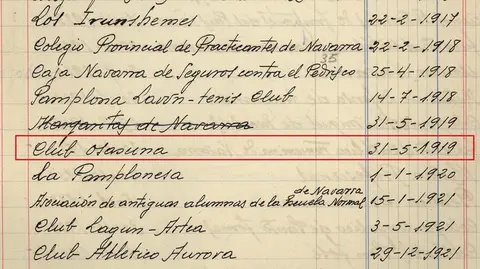 Los Irunshemes 22-2-1917
Colegio Provincial de Practicantes de Navarra 22-2-1918
35
Caja Navarra de Seguros contra el Pedrisco 25-4-1918
Pamplona Lavón-tenis Club 14-7-1918
Margaritas de Navarra 31-5-1919
Club Osasuna 31-5-1919
La Pamplonesa 1-1-1920
de Navarra
Asociación de antiguas alumnas de la Escuela Normal 15-1-1921
Club Lagun-Artea 3-5-1921
Club Atletico Aurora 29-12-1921